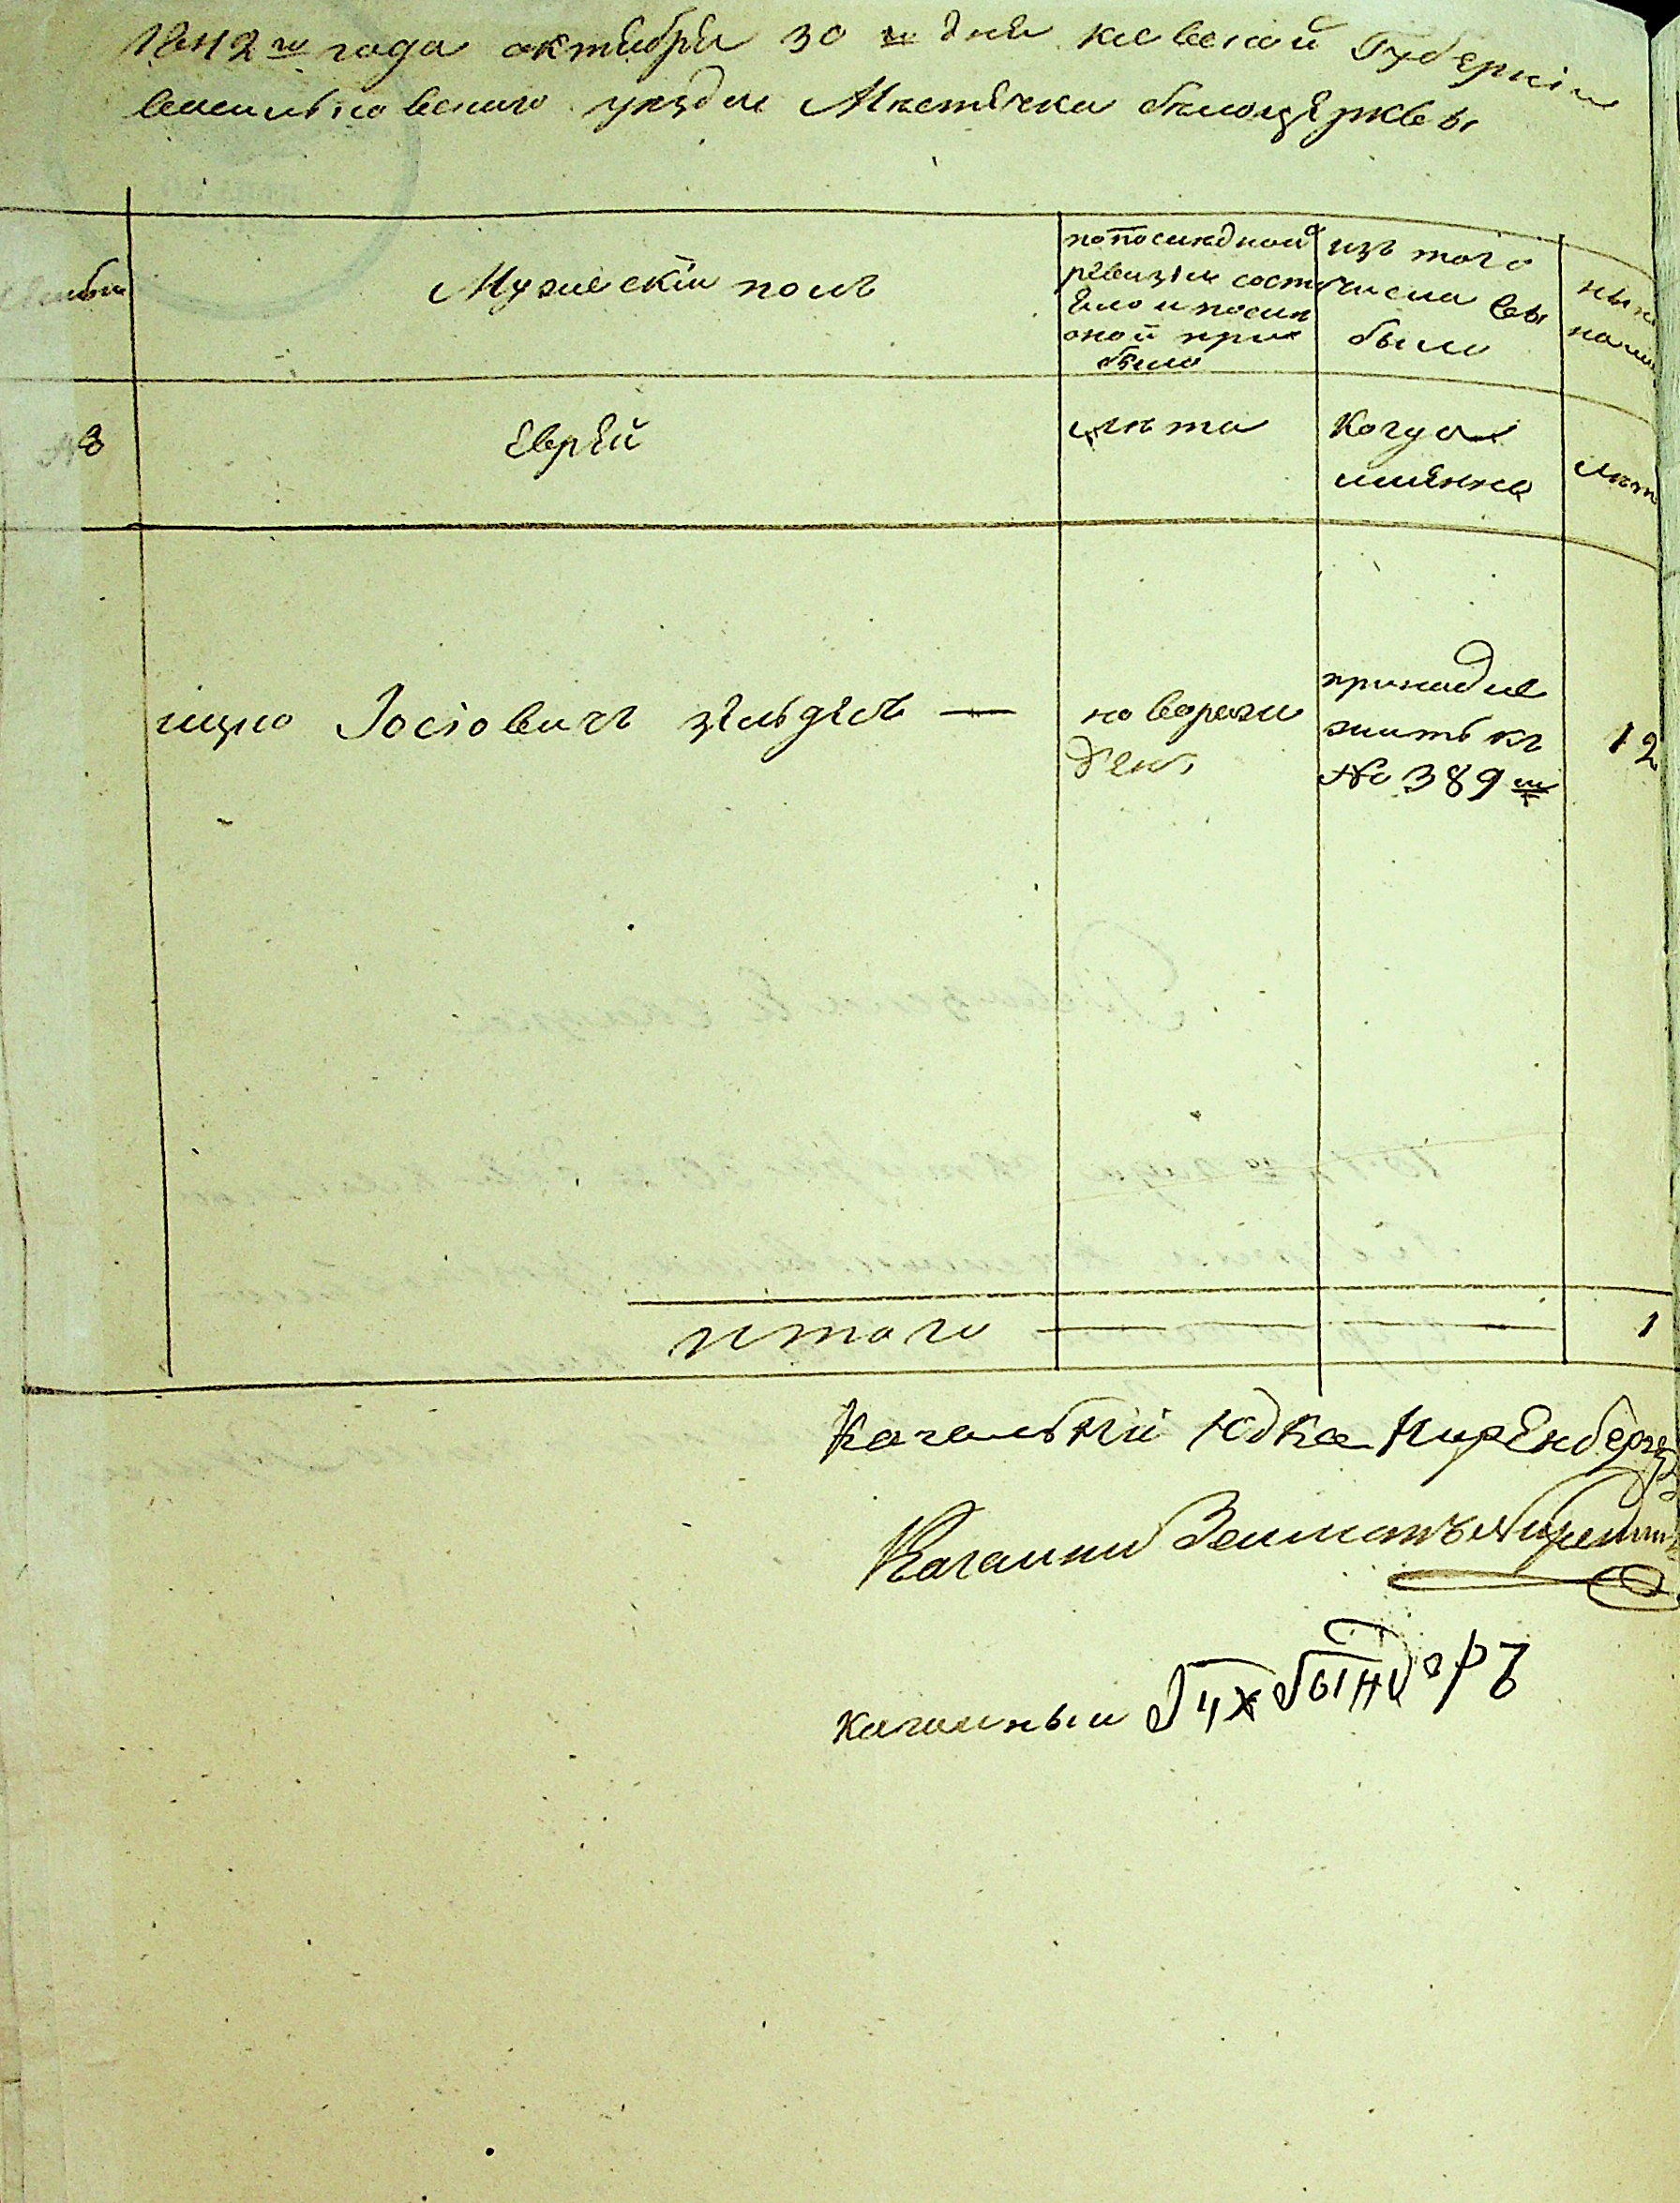 1842го года октября 30го дня киевской Губернiи
васильковского уезда Местечка белоцеркви
Мужескiй полъ
по последной
ревизiи сост
ояло и после
оной при
было
изъ того
числа вы
было
ныне
налиц
№
Еврей
лета
Когда
имянно
лет
ицко Iосiовичъ зельдесъ —
новорож
ден
принадле
жить къ
№ 389му
12
итого
1
Кагальный Юдка Ниренберг
Кагалный Зелман
кагалный